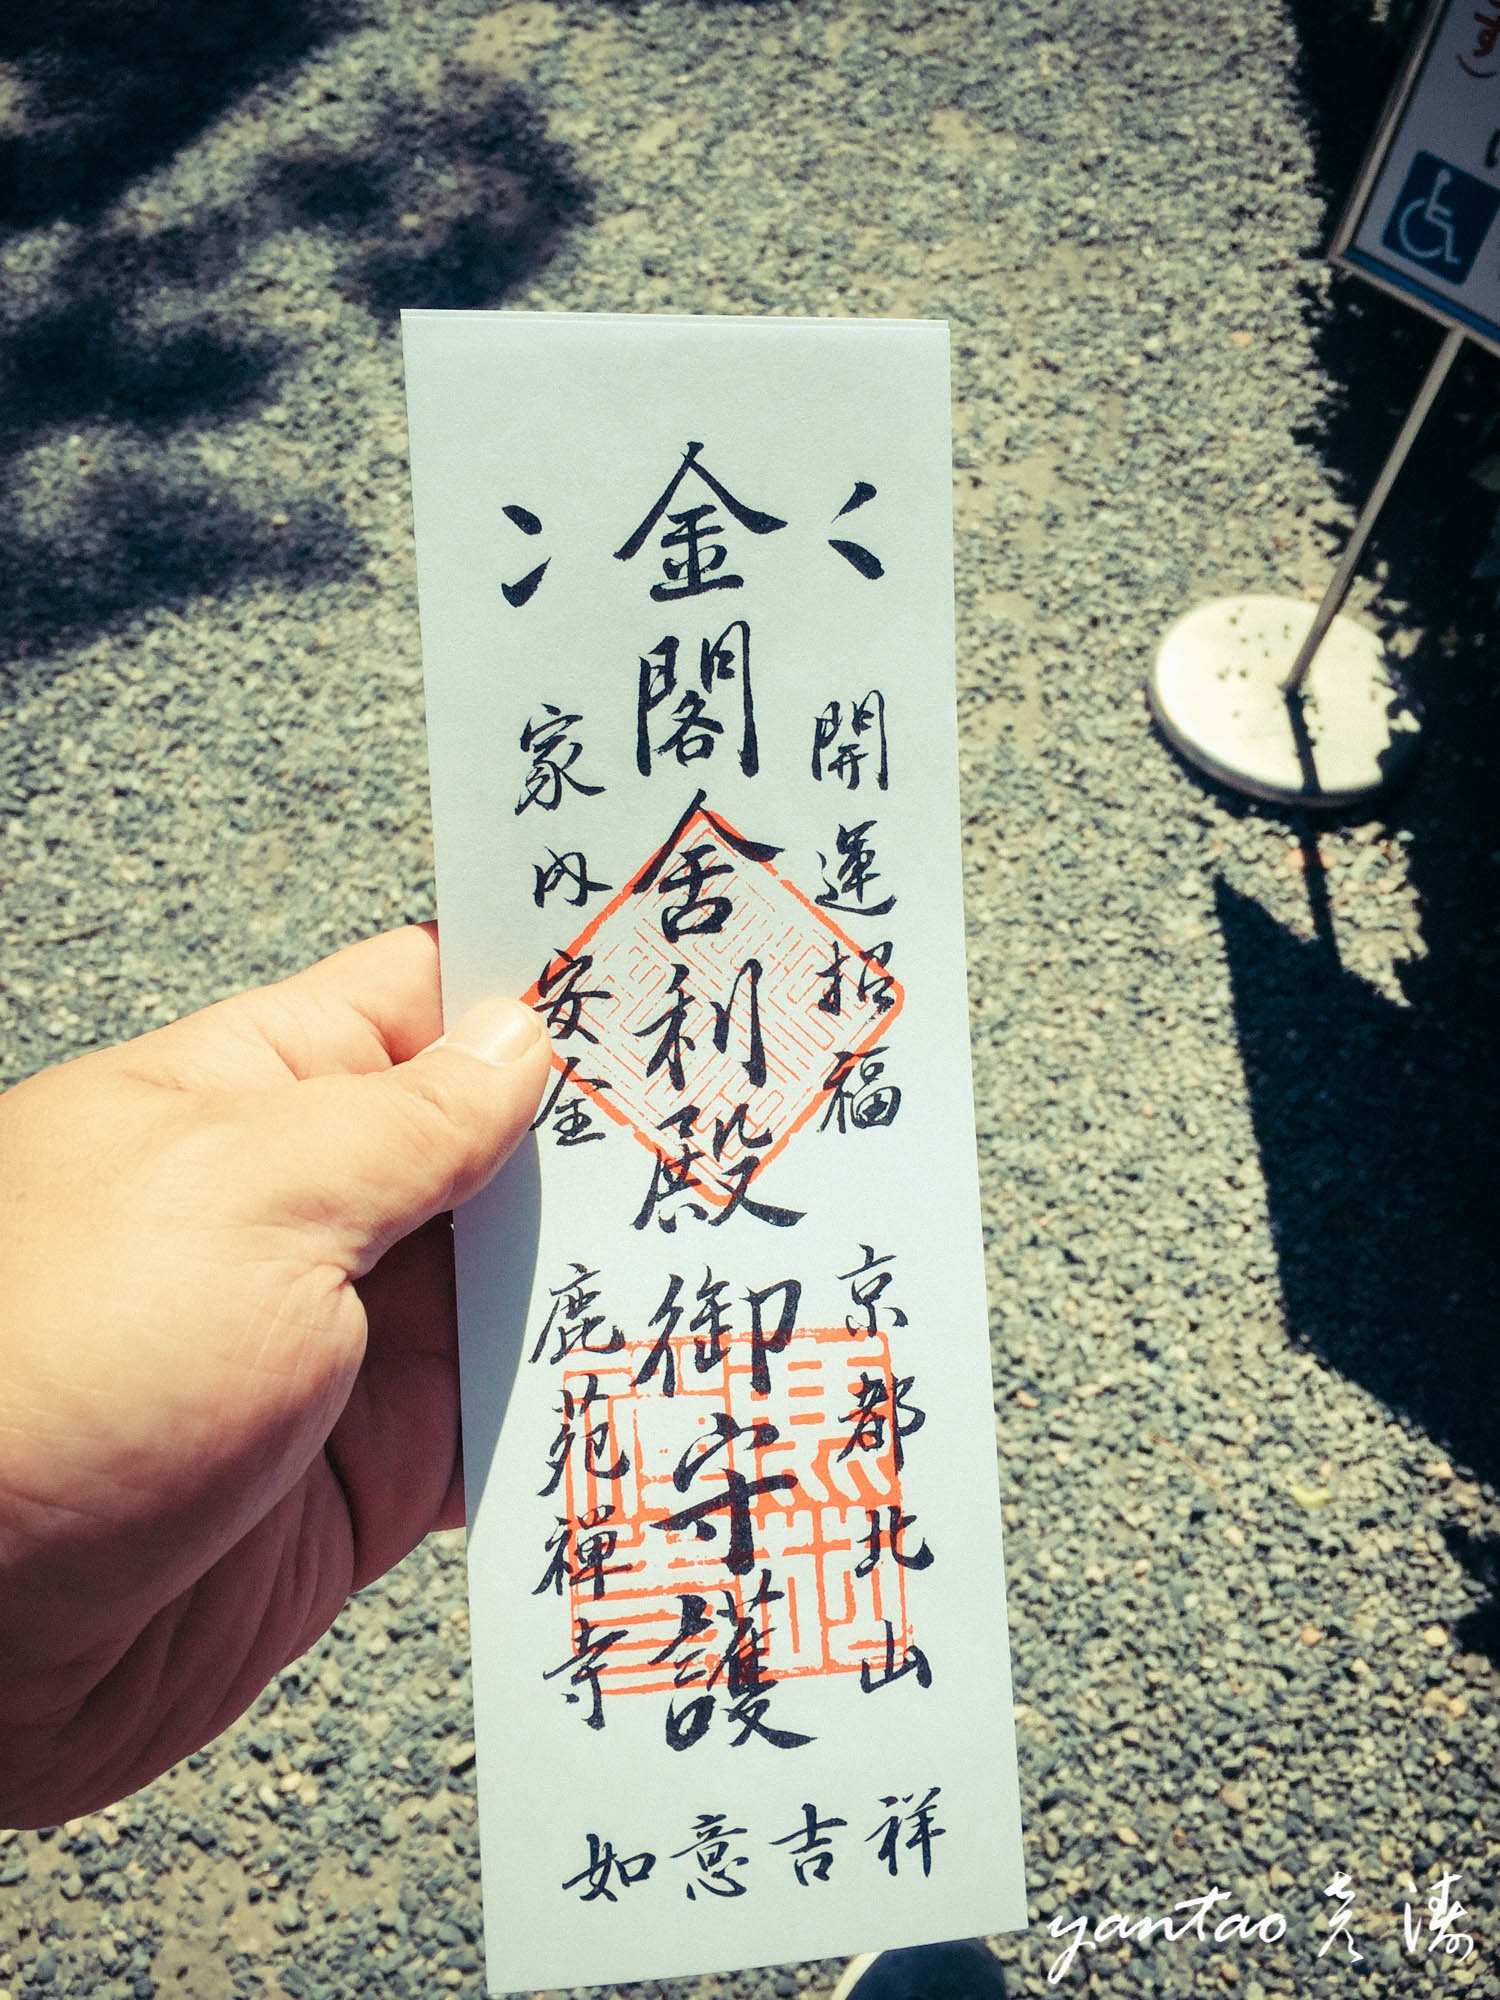 金閣舍利殿御守護
開運招福
家内安全
京都北山
鹿苑禅寺
如意吉祥
yantao